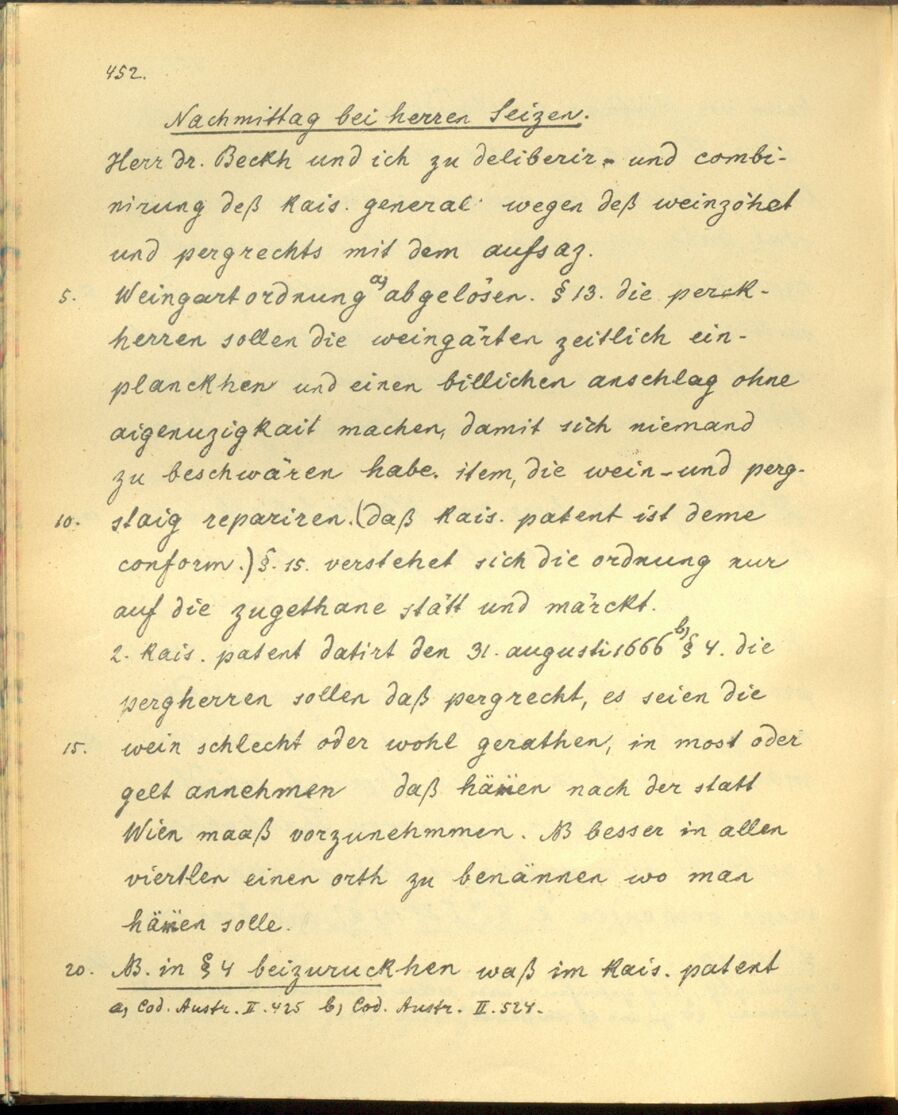 452.
Nachmittag bei herren Seizen.
Herr dr. Beckh und ich zu deliberir- und combi-
nirung deß kais. general wegen deß weinzöhet
und pergrechts mit dem aufsaz.
5. Weingartordnung a) abgelösen. § 13. die perck-
herren sollen die weingärten zeitlich ein-
planckhen und einen billichen anschlag ohne
aigenuzigkait machen, damit sich niemand
zu beschwären habe. item, die wein- und perg-
10. staig repariren. (daß kais. patent ist deme
conform.) §. 15. verstehet sich die ordnung nur
auf die zugethane stätt und märckt.
2. kais. patent datirt den 31. augusti 1666 b) § 4. die
pergherren sollen daß pergrecht, es seien die
15. wein schlecht oder wohl gerathen, in most oder
gelt annehmen daß häüen nach der statt
Wien maaß vorzunehmmen. NB besser in allen
viertlen einen orth zu benännen wo man
häüen solle.
20. NB. in § 4 beizuruckhen waß im kais. patent
a) Cod. Austr. II. 425 b) Cod. Austr. II. 524.